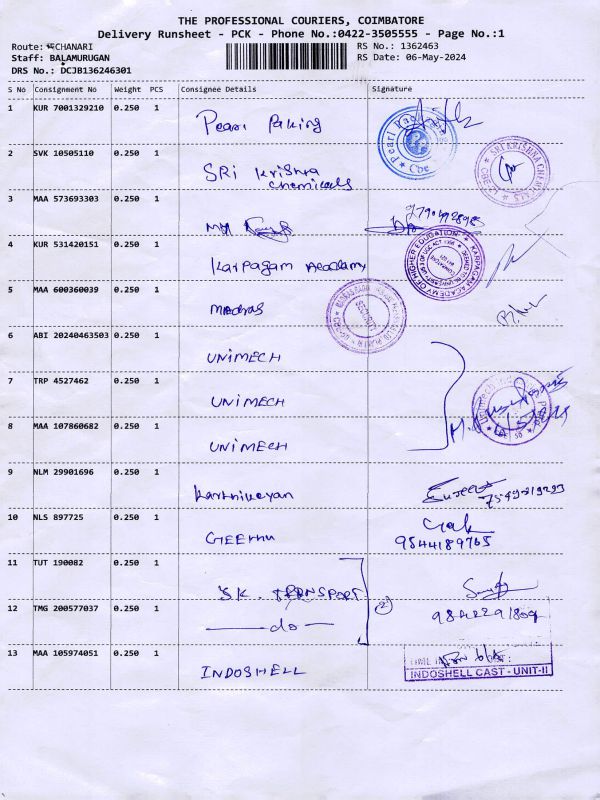 THE PROFESSIONAL COURIERS, COIMBATORE
Delivery Runsheet - PCK - Phone No.:0422-3505555 - Page No.:1
Route: CHANARI
RS No.: 1362463
Staff: BALAMURUGAN
RS Date: 06-May-2024
DRS No.: DCJB136246301
S No Consignment No Weight PCS Consignee Details Signature
1 KUR 7001329210 0.250 1 Pearl Paking
2 SVK 10505110 0.250 1 SRi Krishna chemicals
SRI KRISHNA CHEMICALS
3 MAA 573693303 0.250 1
4 KUR 531420151 0.250 1 Karpagam Academy
KARPAGAM ACADEMY OF HIGHER EDUCATION
5 MAA 600360039 0.250 1 Madras
SECURITY
6 ABI 20240463503 0.250 1 UNIMECH
7 TRP 4527462 0.250 1 UNIMECH
8 MAA 107860682 0.250 1 UNIMECH
9 NLM 29901696 0.250 1 Karthikeyan
10 NLS 897725 0.250 1 GEETHU
9544189765
11 TUT 190082 0.250 1 SK. TRANSPORT
12 TMG 200577037 0.250 1 do
(2)
9842291809
13 MAA 105974051 0.250 1 INDOSHELL
INDOSHELL CAST - UNIT-II